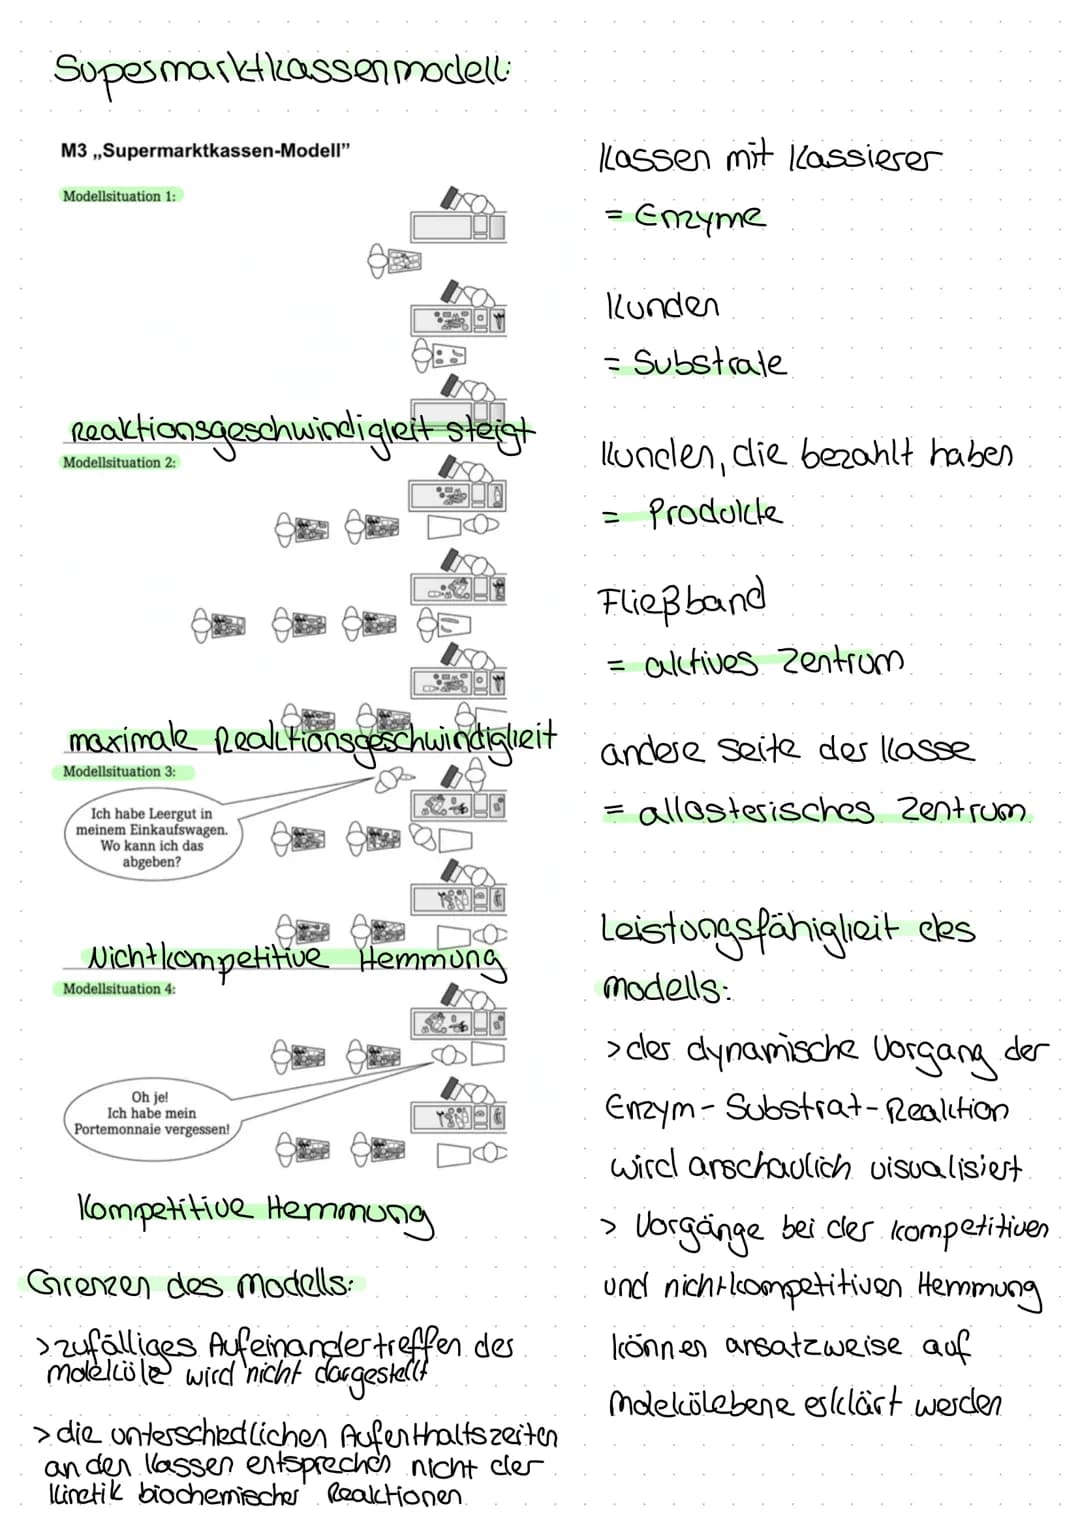 Supermarktkassenmodell:
M3 „Supermarktkassen-Modell"
Modellsituation 1:
Reaktionsgeschwindigkeit steigt
Modellsituation 2:
maximale Reaktionsgeschwindigkeit
Modellsituation 3:
Ich habe Leergut in
meinem Einkaufswagen.
Wo kann ich das
abgeben?
Nichtkompetitive Hemmung
Modellsituation 4:
Oh je!
Ich habe mein
Portemonnaie vergessen!
Kompetitive Hemmung
Grenzen des Modells:
> zufälliges Aufeinandertreffen der
Moleküle wird nicht dargestellt
> die unterschiedlichen Aufenthaltszeiten
an den Kassen entsprechen nicht der
Kinetik biochemischer Reaktionen
Kassen mit Kassierer
= Enzyme
Kunden
= Substrate
Kunden, die bezahlt haben
= Produkte
Fließband
= aktives Zentrum
andere Seite der Kasse
= allosterisches Zentrum
Leistungsfähigkeit des
Modells:
> der dynamische Vorgang der
Enzym-Substrat-Reaktion
wird anschaulich visualisiert
> Vorgänge bei der kompetitiven
und nichtkompetitiven Hemmung
können ansatzweise auf
Molekülebene erklärt werden